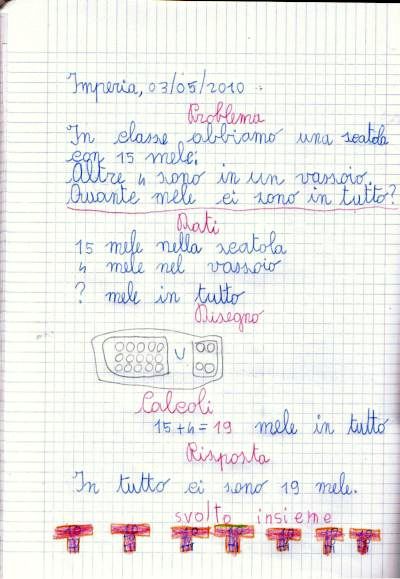 Imperia, 03/05/2010
Problema
In classe abbiamo una scatola
con 15 mele.
Altre 4 sono in un vassoio.
Quante mele ci sono in tutto?
Dati
15 mele nella scatola
4 mele nel vassoio
? mele in tutto
Disegno
U
Calcoli
15+4=19 mele in tutto
Risposta
In tutto ci sono 19 mele.
svolto insieme